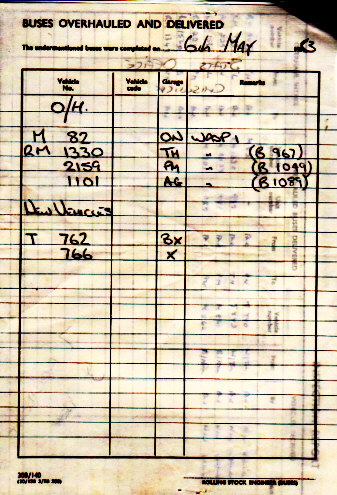 BUSES OVERHAULED AND DELIVERED
The undermentioned buses were completed on 6th MAY 83
Vehicle No. Vehicle code Garage Remarks
O/H.
M 82 ON WASP 1
RM 1330 TH " (B 967)
2159 PM " (B 1049)
1101 AG " (B 1089)
NEW VEHICLES
T 762 BX
766 X
ROLLING STOCK ENGINEER (BUSES)